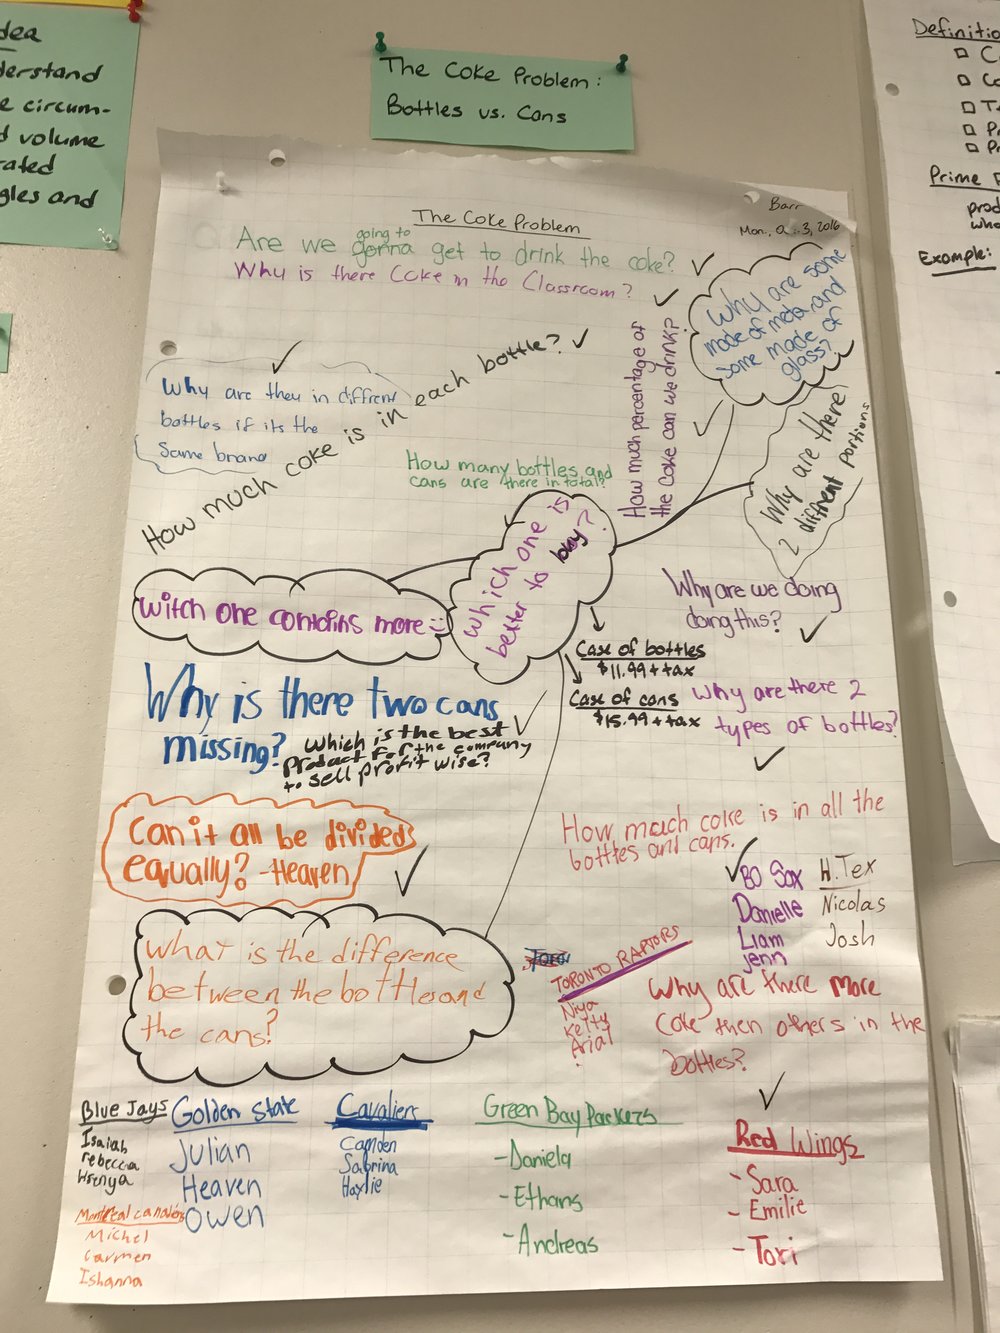 dea
derstand
e circum-
d volume
rated
gles and
The Coke Problem:
Bottles vs. Cans
Definitio
Prime
prod
who
Example:
The Coke Problem
Barr
Mon., 3, 2016
going to
Are we gonna get to drink the coke?
Why is there Coke in the Classroom?
Why are some
made of metal and
some made of
glass?
How much percentage of
the coke can we drink?
Why are there
2 different portions
Why are they in diffrent
bottles if its the
Same brand
How much coke is in each bottle?
How many bottles and
cans are there in total?
Which one is
better to buy?
witch one contains more
Why are we doing
doing this?
Case of bottles
$11.99 + tax
Case of cans
$15.99 + tax
Why are there 2
types of bottles?
Why is there two cans
missing?
which is the best
product for the company
to sell profit wise?
Can it all be divided
equally? -Heaven
How much coke is in all the
bottles and cans.
What is the difference
between the bottles and
the cans?
BO Sox
Danielle
Liam
Jenn
H.Tex
Nicolas
Josh
TORONTO RAPTORS
Niya
Arial
Why are there more
coke then others in the
bottles?
Blue Jays
Isaiah
rebecca
Golden State
Julian
Heaven
Owen
Cavaliers
Camden
Sabrina
Haylie
Green Bay Packers
-Daniela
-Ethans
-Andreas
Red Wings
-Sara
-Emilie
-Tori
Michel
Carmen
Ishanna